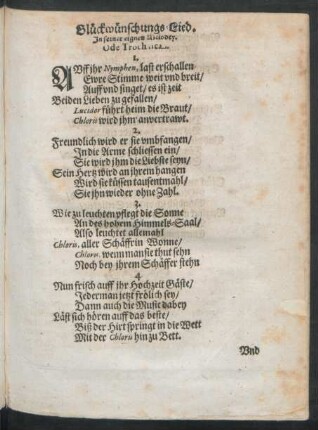 Glückwünschungs-Lied.
In seiner eignen Melodey.
Ode
1.
AUff jhr Nymphen, last erschallen
Ewre Stimme weit vnd breit/
Auff vnd singet/ es ist zeit
Beiden Lieben zu gefallen/
Lucidor führt heim die Braut/
Chloris wird jhm anvertrawt.
2.
Freundlich wird er sie vmbfangen/
In die Arme schliessen ein/
Sie wird jhm die Liebste seyn/
Sein Hertz wird an jhrem hangen
Wird sie küssen tausentmahl/
Sie jhn wieder ohne Zahl.
3.
Wie zu leuchten pflegt die Sonne
An des hohem Himmels-Saal/
Also leuchtet allemahl
Chloris, aller Schäffrin Wonne/
Chloris, wenn man sie thut sehn
Noch bey jhrem Schäffer stehn
4.
Nun frisch auff jhr Hochzeit Gäste/
Jederman jetzt frölich sey/
Dann auch die Music dabey
Läst sich hören auff das beste/
Biß der Hirt springt in die Wett
Mit der Chloris hin zu Bett.
Vnd